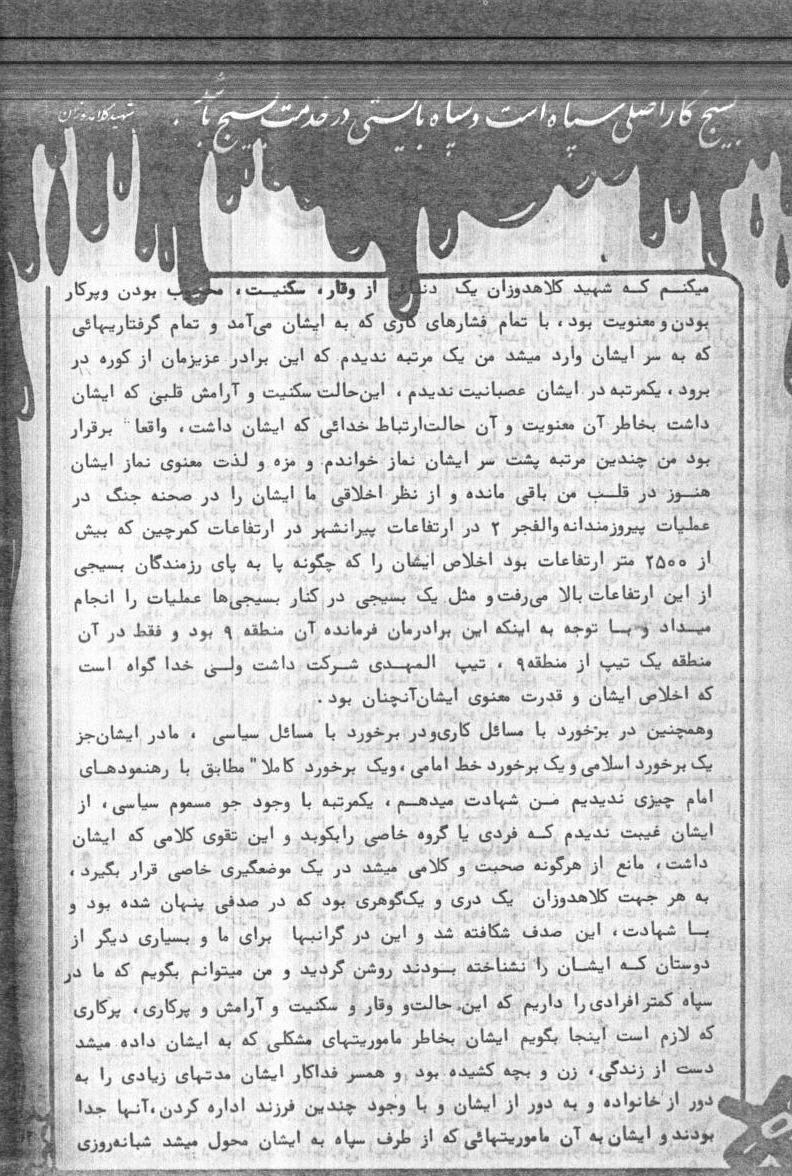 بسیج کار اصلی سپاه است و سپاه بایستی در خدمت بسیج باشد.
شهید کلاهدوزان
میکنم که شهید کلاهدوزان یک از وقار، سکنیت، بودن وپرکار
بودن و معنویت بود، با تمام فشارهای کاری که به ایشان می‌آمد و تمام گرفتاریهائی
که به سر ایشان وارد میشد من یک مرتبه ندیدم که این برادر عزیزمان از کوره در
برود، یکمرتبه در ایشان عصبانیت ندیدم، این‌حالت سکنیت و آرامش قلبی که ایشان
داشت بخاطر آن معنویت و آن حالت‌ارتباط خدائی که ایشان داشت، واقعا" برقرار
بود من چندین مرتبه پشت سر ایشان نماز خواندم و مزه و لذت معنوی نماز ایشان
هنوز در قلب من باقی مانده و از نظر اخلاقی ما ایشان را در صحنه جنگ در
عملیات پیروزمندانه والفجر ۲ در ارتفاعات پیرانشهر در ارتفاعات کمرچین که بیش
از ۲۵۰۰ متر ارتفاعات بود اخلاص ایشان را که چگونه پا به پای رزمندگان بسیجی
از این ارتفاعات بالا می‌رفت و مثل یک بسیجی در کنار بسیجی‌ها عملیات را انجام
میداد و با توجه به اینکه این برادرمان فرمانده آن منطقه ۹ بود و فقط در آن
منطقه یک تیپ از منطقه۹ ، تیپ المهدی شرکت داشت ولی خدا گواه است
که اخلاص ایشان و قدرت معنوی ایشان‌آنچنان بود.
وهمچنین در برخورد با مسائل کاری‌ودر برخورد با مسائل سیاسی ، مادر ایشان‌جز
یک برخورد اسلامی و یک برخورد خط امامی ،ویک برخورد کاملا" مطابق با رهنمودهای
امام چیزی ندیدیم من شهادت میدهم، یکمرتبه با وجود جو مسموم سیاسی، از
ایشان غیبت ندیدم که فردی یا گروه خاصی رابکوبد و این تقوی کلامی که ایشان
داشت، مانع از هرگونه صحبت و کلامی میشد در یک موضعگیری خاصی قرار بگیرد،
به هر جهت کلاهدوزان یک دری و یک‌گوهری بود که در صدفی پنهان شده بود و
با شهادت، این صدف شکافته شد و این در گرانبها برای ما و بسیاری دیگر از
دوستان که ایشان را نشناخته بودند روشن گردید و من میتوانم بگویم که ما در
سپاه کمتر افرادی را داریم که این حالت‌و وقار و سکنیت و آرامش و پرکاری، پرکاری
که لازم است اینجا بگویم ایشان بخاطر ماموریتهای مشکلی که به ایشان داده میشد
دست از زندگی، زن و بچه کشیده بود و همسر فداکار ایشان مدتهای زیادی را به
دور از خانواده و به دور از ایشان و با وجود چندین فرزند اداره کردن،آنها جدا
بودند و ایشان به آن ماموریتهائی که از طرف سپاه به ایشان محول میشد شبانه‌روزی